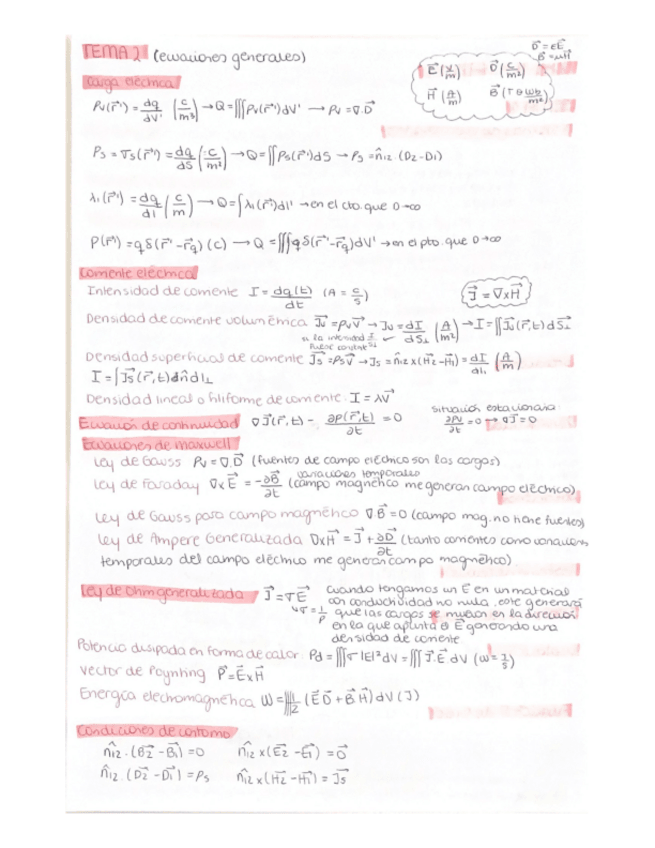 TEMA 2 (ecuaciones generales)
D⃗ = εE⃗
B⃗ = μH⃗
E⃗ (V/m) D⃗ (C/m²)
H⃗ (A/m) B⃗ (T o Wb/m²)
Carga eléctrica
ρv(r⃗') = dq/dV' (C/m³) → Q = ∭ρv(r⃗')dV' → ρv = ∇·D⃗
ρs = σs(r⃗') = dq/dS (C/m²) → Q = ∬ρs(r⃗')dS → ρs = n̂12·(D2-D1)
λl(r⃗') = dq/dl (C/m) → Q = ∫λl(r⃗')dl' → en el cto. que D→∞
ρ(r⃗') = qδ(r⃗'-r⃗q) (C) → Q = ∭qδ(r⃗'-r⃗q)dV' → en el pto. que D→∞
Corriente eléctrica
Intensidad de corriente I = dq(t)/dt (A = C/s)
J⃗ = ∇xH⃗
Densidad de corriente volumétrica J⃗v = ρvV⃗ → Jv = dI/dS⊥ (A/m²) → I = ∬J⃗v(r⃗,t)dS⃗⊥
si la intensidad
Densidad superficial de corriente J⃗s = ρsV⃗ → Js = n̂12x(H⃗2-H⃗1) = dI/dl⊥ (A/m)
I = ∫J⃗s(r⃗,t)dn̂dl⊥
Densidad lineal o filiforme de corriente I = λV⃗
Ecuación de continuidad ∇J⃗(r⃗,t) - ∂ρ(r⃗,t)/∂t = 0
situación estacionaria
∂ρv/∂t = 0 → ∇J⃗ = 0
Ecuaciones de maxwell
Ley de Gauss ρv = ∇·D⃗ (fuentes de campo eléctrico son las cargas)
variaciones temporales
Ley de Faraday ∇xE⃗ = -∂B⃗/∂t (campo magnético me generan campo eléctrico)
Ley de Gauss para campo magnético ∇·B⃗ = 0 (campo mag. no tiene fuentes)
Ley de Ampere Generalizada ∇xH⃗ = J⃗ + ∂D⃗/∂t (tanto corrientes como variaciones
temporales del campo eléctrico me generan campo magnético)
Ley de Ohm generalizada J⃗ = σE⃗ Cuando tengamos un E⃗ en un material
con conductividad no nula, este generará
↳ σ = 1/ρ que las cargas se muevan en la dirección
en la que apunta el E⃗ generando una
densidad de corriente
Potencia disipada en forma de calor: Pd = ∭σ|E|²dV = ∭J⃗·E⃗ dV (W = J/s)
Vector de Poynting P⃗ = E⃗xH⃗
Energía electromagnética W = ∭½(E⃗D⃗ + B⃗H⃗)dV (J)
Condiciones de contorno
n̂12·(B⃗2-B⃗1) = 0 n̂12x(E⃗2-E⃗1) = 0⃗
n̂12·(D⃗2-D⃗1) = ρs n̂12x(H⃗2-H⃗1) = J⃗s